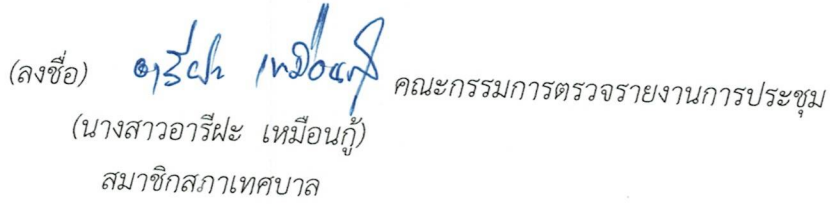 (ลงชื่อ) อารีฝะ เหมือนกู้ คณะกรรมการตรวจรายงานการประชุม
(นางสาวอารีฝะ เหมือนกู้)
สมาชิกสภาเทศบาล